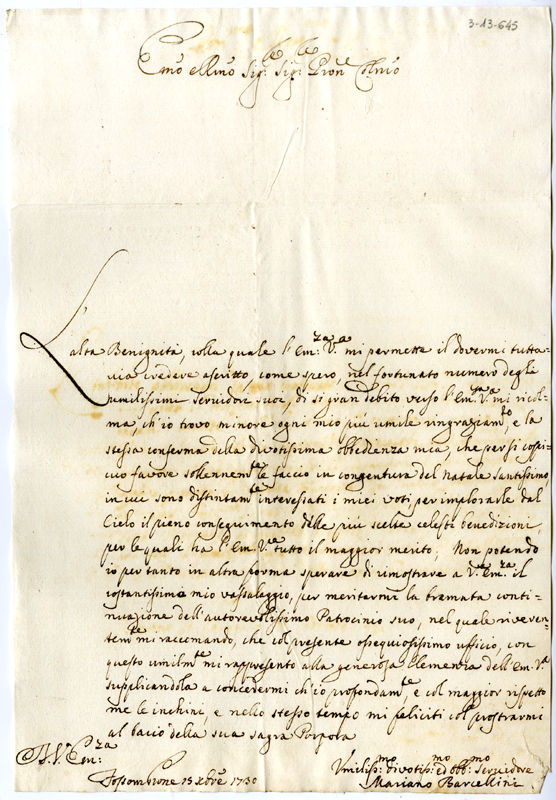 3-13-645
Emo e Rmo Sig:re Sig:re Pron Colmo
L'alta Benignità, colla quale l'Em:za V.a mi permette il dovermi tutta-
via credere ascritto, come spero, nel fortunato numero degli
umilissimi servidori suoi, di sì gran debito verso l'Em:za V.a mi ricol-
ma, ch'io trovo minore ogni mio più umile ringraziam:to, e la
stessa conferma della divotissima obbedienza mia, che per sì cospi-
cuo favore sollennem:te le faccio in congentura del Natale santissimo,
in cui sono distintam:te interessati i miei voti per implorarle dal
Cielo il pieno conseguimento delle più scelte celesti benedizioni,
per le quali ha l'Em: V.a tutto il maggior merito; Non potendo
io per tanto in altra forma sperare di rimostrare a V.a Em:za il
costantissimo mio vassalaggio, per meritarmi la bramata conti-
nuazione dell'autorevolissimo Patrocinio suo, nel quale riveren-
tem:te mi raccomando, che col presente ossequiosissimo ufficio, con
questo umilm:te mi rappresento alla generosa Clemenza dell'Em: V.a
supplicandola a concedermi ch'io profondam:te, e col maggior rispetto
me le inchini, e nello stesso tempo mi feliciti col prostrarmi
al bacio della sua sagra Porpora
D. V.a Em:za
Fossombrone 15 Xbre 1730
Umiliss:mo divotiss:mo ed obb:mo servidore
Mariano Barcellini